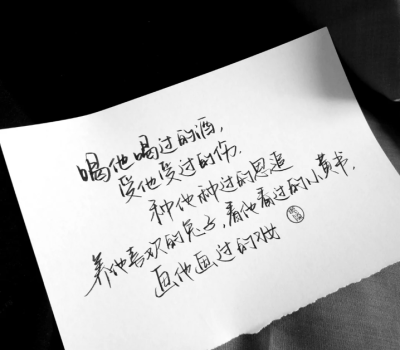 喝他喝过的酒,
受他受过的伤.
种他种过的思追
养他喜欢的兔子,看他看过的小黄书,
画他画过的妆